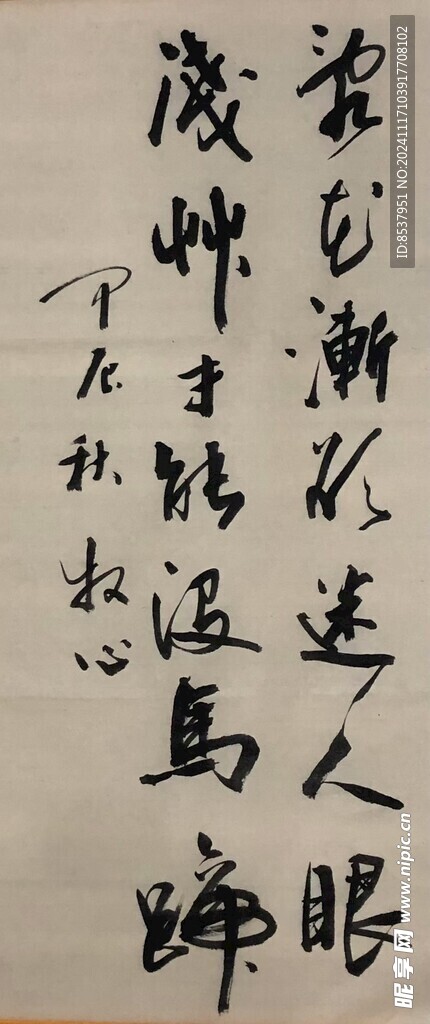 亂花漸欲迷人眼
淺草才能沒馬蹄
甲辰秋 牧心
ID:8537951 NO:20241117103917708102
昵享网 www.nipic.cn